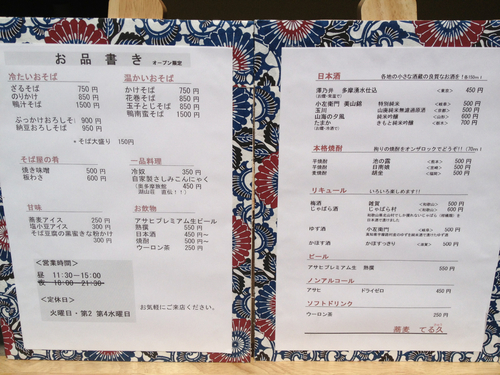 お品書き オープン限定
冷たいおそば
ざるそば 750 円
のりかけ 850 円
鴨汁そば 1500 円
ぶっかけおろしそば 900 円
納豆おろしそば 950 円
・そば大盛り 150円
温かいおそば
かけそば 750 円
花巻そば 850 円
玉子とじそば 850 円
鴨南蛮そば 1500 円
そば屋の肴
焼き味噌 500 円
板わさ 600 円
一品料理
冷奴 350 円
自家製さしみこんにゃく
(奥多摩旅館 450 円
湖山荘 直伝!!)
甘味
蕎麦アイス 250 円
塩小豆アイス 300 円
そば豆腐の黒蜜きな粉かけ
300 円
お飲物
アサヒプレミアム生ビール
熟撰 550 円
日本酒 450 円~
焼酎 500 円~
ウーロン茶 250 円
<営業時間>
昼 11:30-15:00
夜 18:00-21:30
<定休日>
火曜日・第2 第4水曜日
お気軽にご来店ください。
日本酒 各地の小さな酒蔵の良質なお酒を!
澤乃井 多摩湧水仕込 <東京> 450 円
小左衛門 美山錦 特別純米 <岐阜> 500 円
玉川 山廃純米無濾過原酒 <京都> 500 円
山海の夕風 純米吟醸 600 円
たまか きもと純米吟醸 700 円
本格焼酎 拘りの焼酎をオンザロックでどうぞ!! (70ml)
芋焼酎 池の露 <熊本> 500 円
芋焼酎 日南娘 <宮崎> 500 円
麦焼酎 500 円
リキュール いろいろ楽しめます!!
梅酒 雑賀 <和歌山> 500 円
じゃばら酒 じゃばら村 <和歌山> 500 円
ゆず酒 小左衛門 <岐阜> 500 円
かぼす酒 かぼすっきり 500 円
ビール
アサヒプレミアム生 熟撰 550 円
ノンアルコール
アサヒ ドライゼロ 450 円
ソフトドリンク
ウーロン茶 250 円
蕎麦 てる久